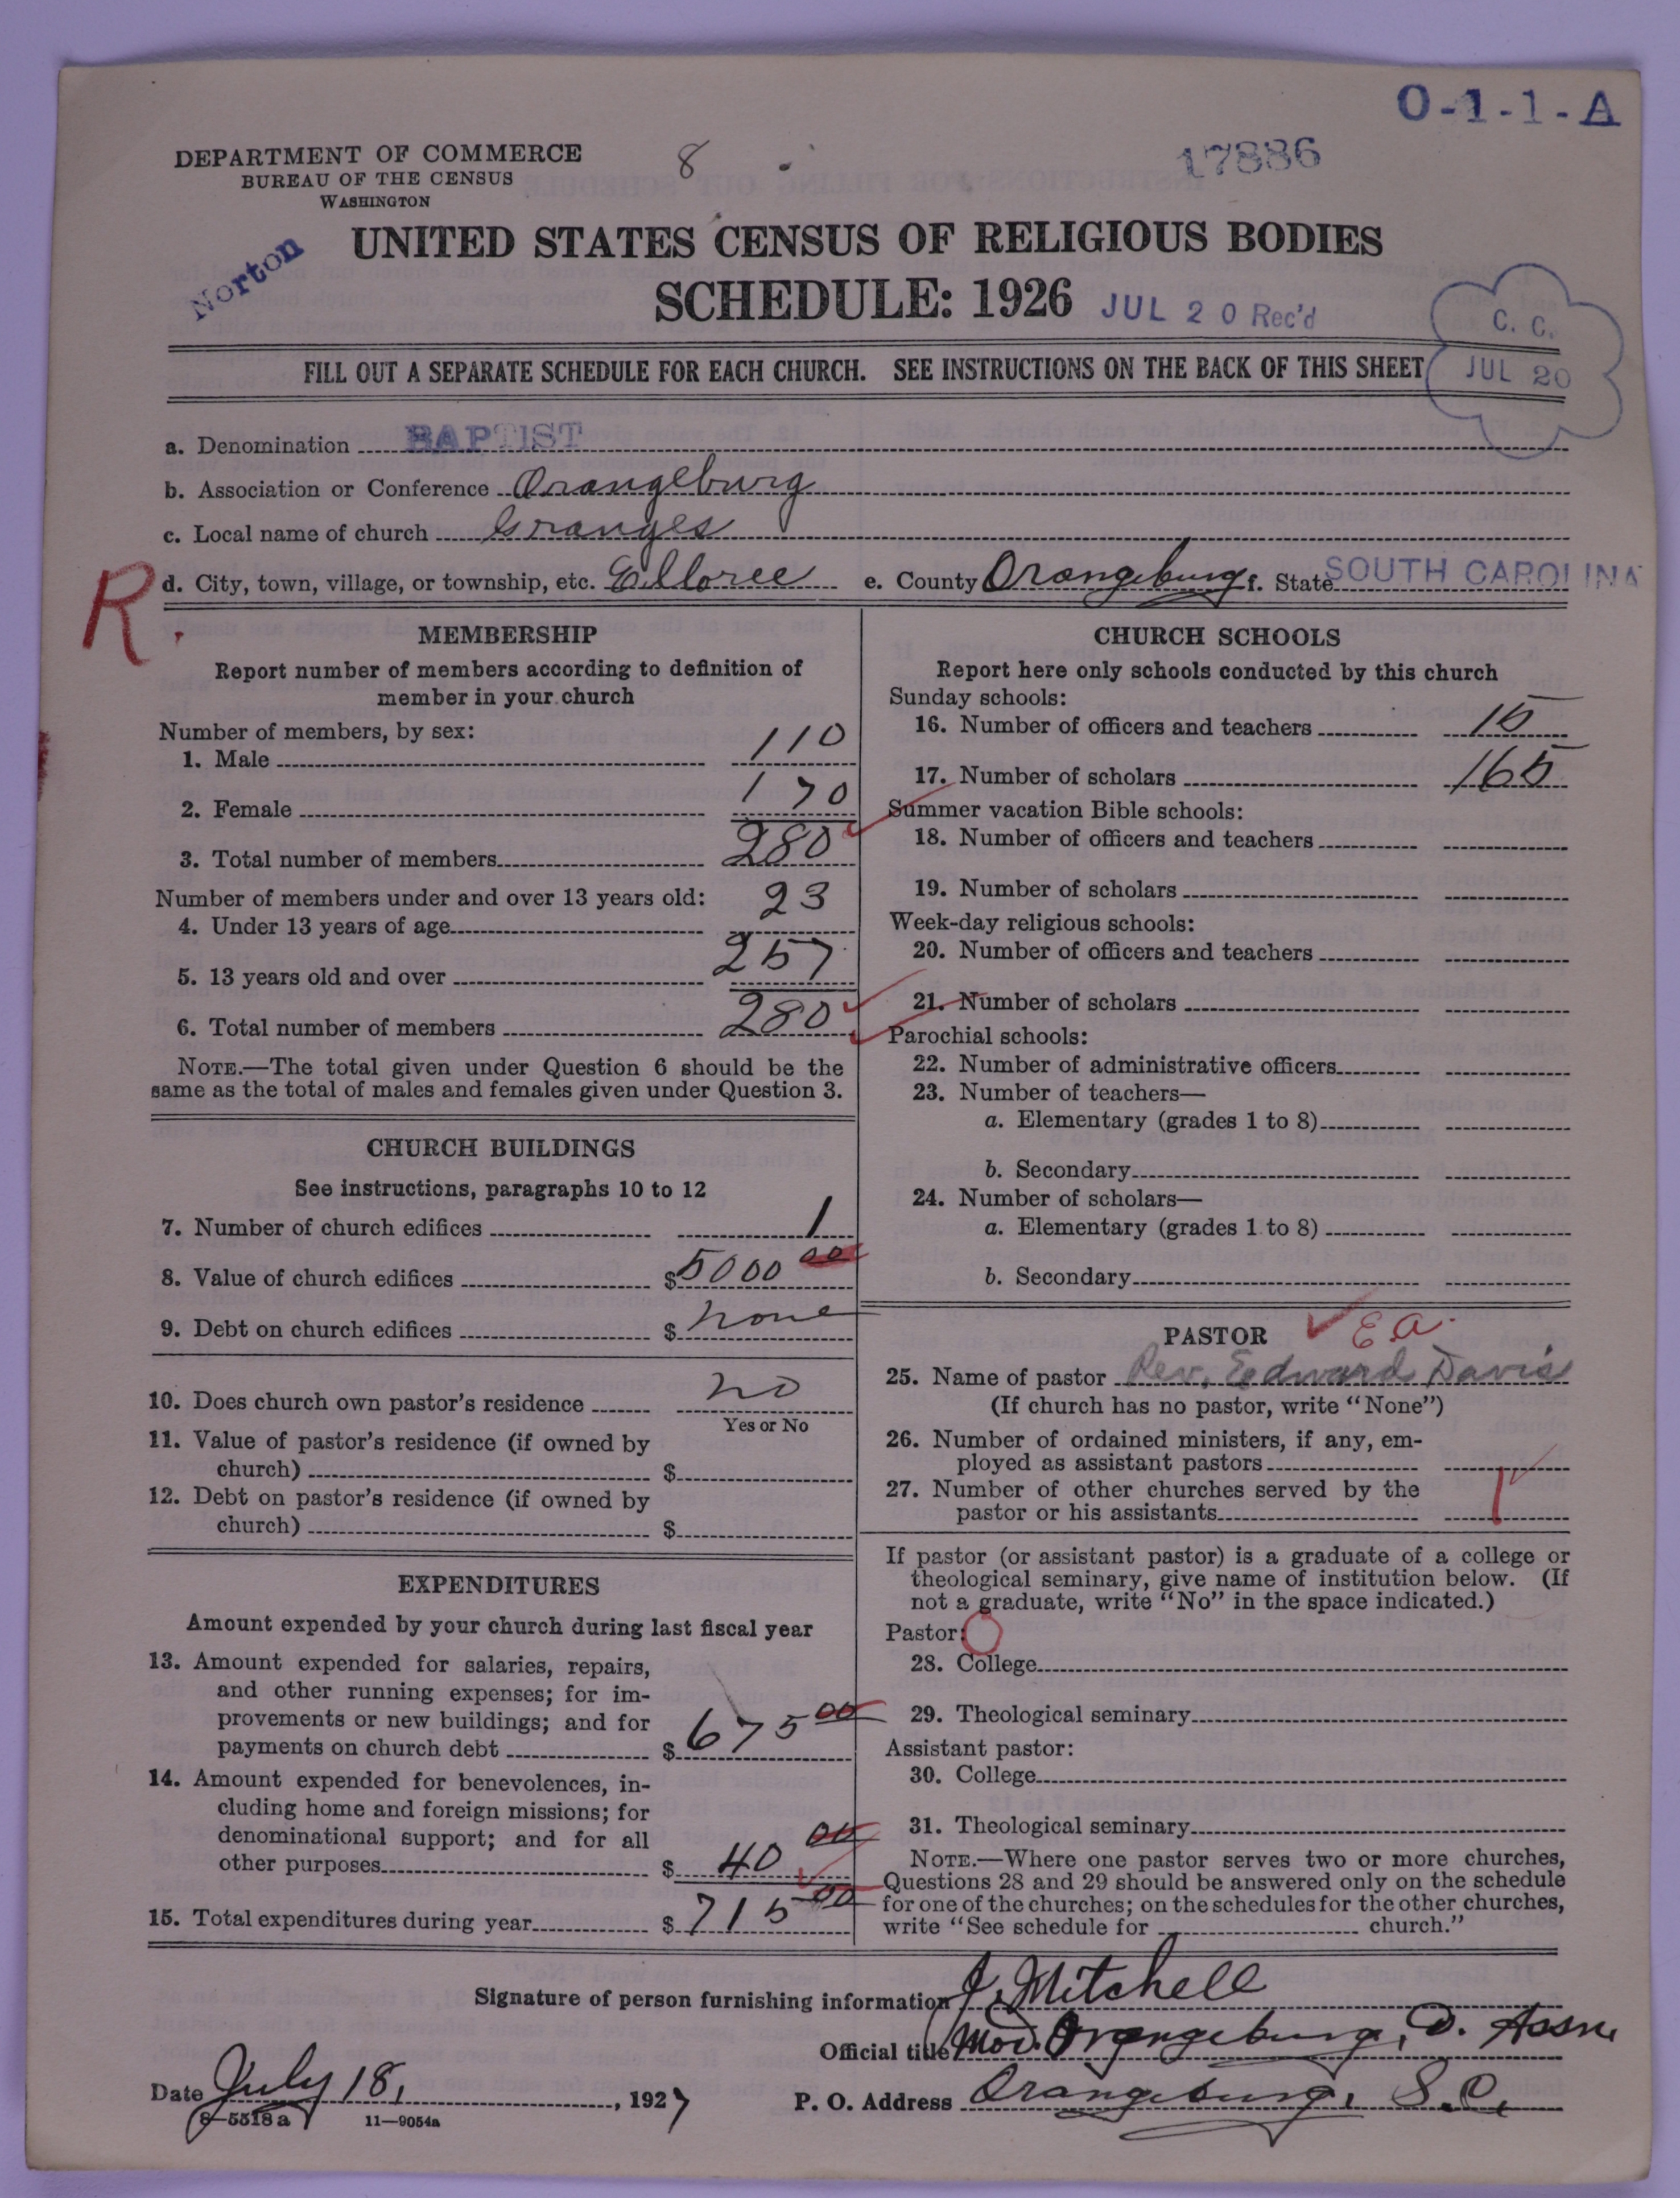 O-1-1-A
DEPARTMENT OF COMMERCE
BUREAU OF THE CENSUS
WASHINGTON
8
17886
Norton
UNITED STATES CENSUS OF RELIGIOUS BODIES
SCHEDULE: 1926
JUL 20 Rec'd
C. C.
JUL 20
FILL OUT A SEPARATE SCHEDULE FOR EACH CHURCH. SEE INSTRUCTIONS ON THE BACK OF THIS SHEET
a. Denomination BAPTIST
b. Association or Conference Orangeburg
c. Local name of church Granges
R.
d. City, town, village, or township, etc. Elloree e. County Orangeburg f. State SOUTH CAROLINA
MEMBERSHIP
Report number of members according to definition of
member in your church
Number of members, by sex:
1. Male 110
2. Female 170
3. Total number of members 280
Number of members under and over 13 years old:
4. Under 13 years of age 23
5. 13 years old and over 257
6. Total number of members 280
NOTE.—The total given under Question 6 should be the
same as the total of males and females given under Question 3.
CHURCH BUILDINGS
See instructions, paragraphs 10 to 12
7. Number of church edifices 1
8. Value of church edifices $ 5000 00
9. Debt on church edifices $ none
10. Does church own pastor's residence no
Yes or No
11. Value of pastor's residence (if owned by
church) $
12. Debt on pastor's residence (if owned by
church) $
EXPENDITURES
Amount expended by your church during last fiscal year
13. Amount expended for salaries, repairs,
and other running expenses; for im-
provements or new buildings; and for
payments on church debt $ 675 00
14. Amount expended for benevolences, in-
cluding home and foreign missions; for
denominational support; and for all
other purposes $ 40 00
15. Total expenditures during year $ 715 00
CHURCH SCHOOLS
Report here only schools conducted by this church
Sunday schools:
16. Number of officers and teachers 15
17. Number of scholars 165
Summer vacation Bible schools:
18. Number of officers and teachers
19. Number of scholars
Week-day religious schools:
20. Number of officers and teachers
21. Number of scholars
Parochial schools:
22. Number of administrative officers
23. Number of teachers—
a. Elementary (grades 1 to 8)
b. Secondary
24. Number of scholars—
a. Elementary (grades 1 to 8)
b. Secondary
PASTOR E a.
25. Name of pastor Rev. Edward Davis
(If church has no pastor, write "None")
26. Number of ordained ministers, if any, em-
ployed as assistant pastors
27. Number of other churches served by the
pastor or his assistants 1
If pastor (or assistant pastor) is a graduate of a college or
theological seminary, give name of institution below. (If
not a graduate, write "No" in the space indicated.)
Pastor:
28. College
29. Theological seminary
Assistant pastor:
30. College
31. Theological seminary
NOTE.—Where one pastor serves two or more churches,
Questions 28 and 29 should be answered only on the schedule
for one of the churches; on the schedules for the other churches,
write "See schedule for church."
Signature of person furnishing information J. Mitchell
Official title Mod. Orangeburg, D. Assn
Date July 18, 1927 P. O. Address Orangeburg, S.C.
8-5518a 11—9054a